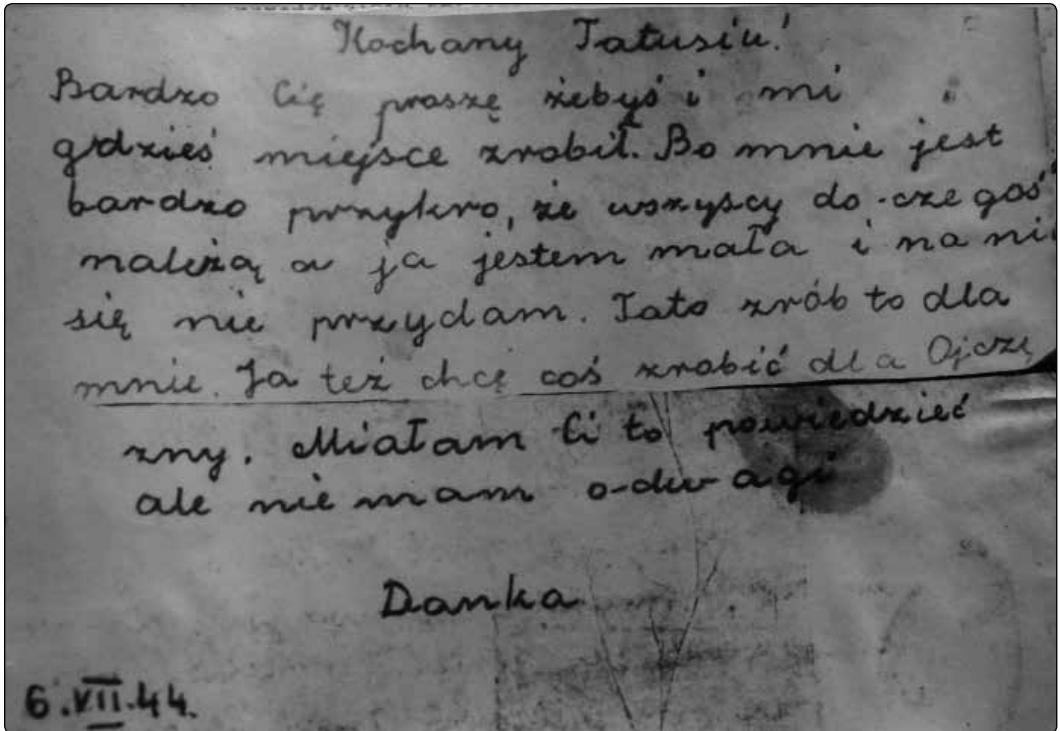 Kochany Tatusiu!
Bardzo Cię proszę żebyś i mi
gdzieś miejsce zrobił. Bo mnie jest
bardzo przykro, że wszyscy do czegoś
należą a ja jestem mała i na ni
się nie przydam. Tato zrób to dla
mnie. Ja też chcę coś zrobić dla Ojczy
zny. Miałam Ci to powiedzieć
ale nie mam odwagi
Danka
6.VII.44.